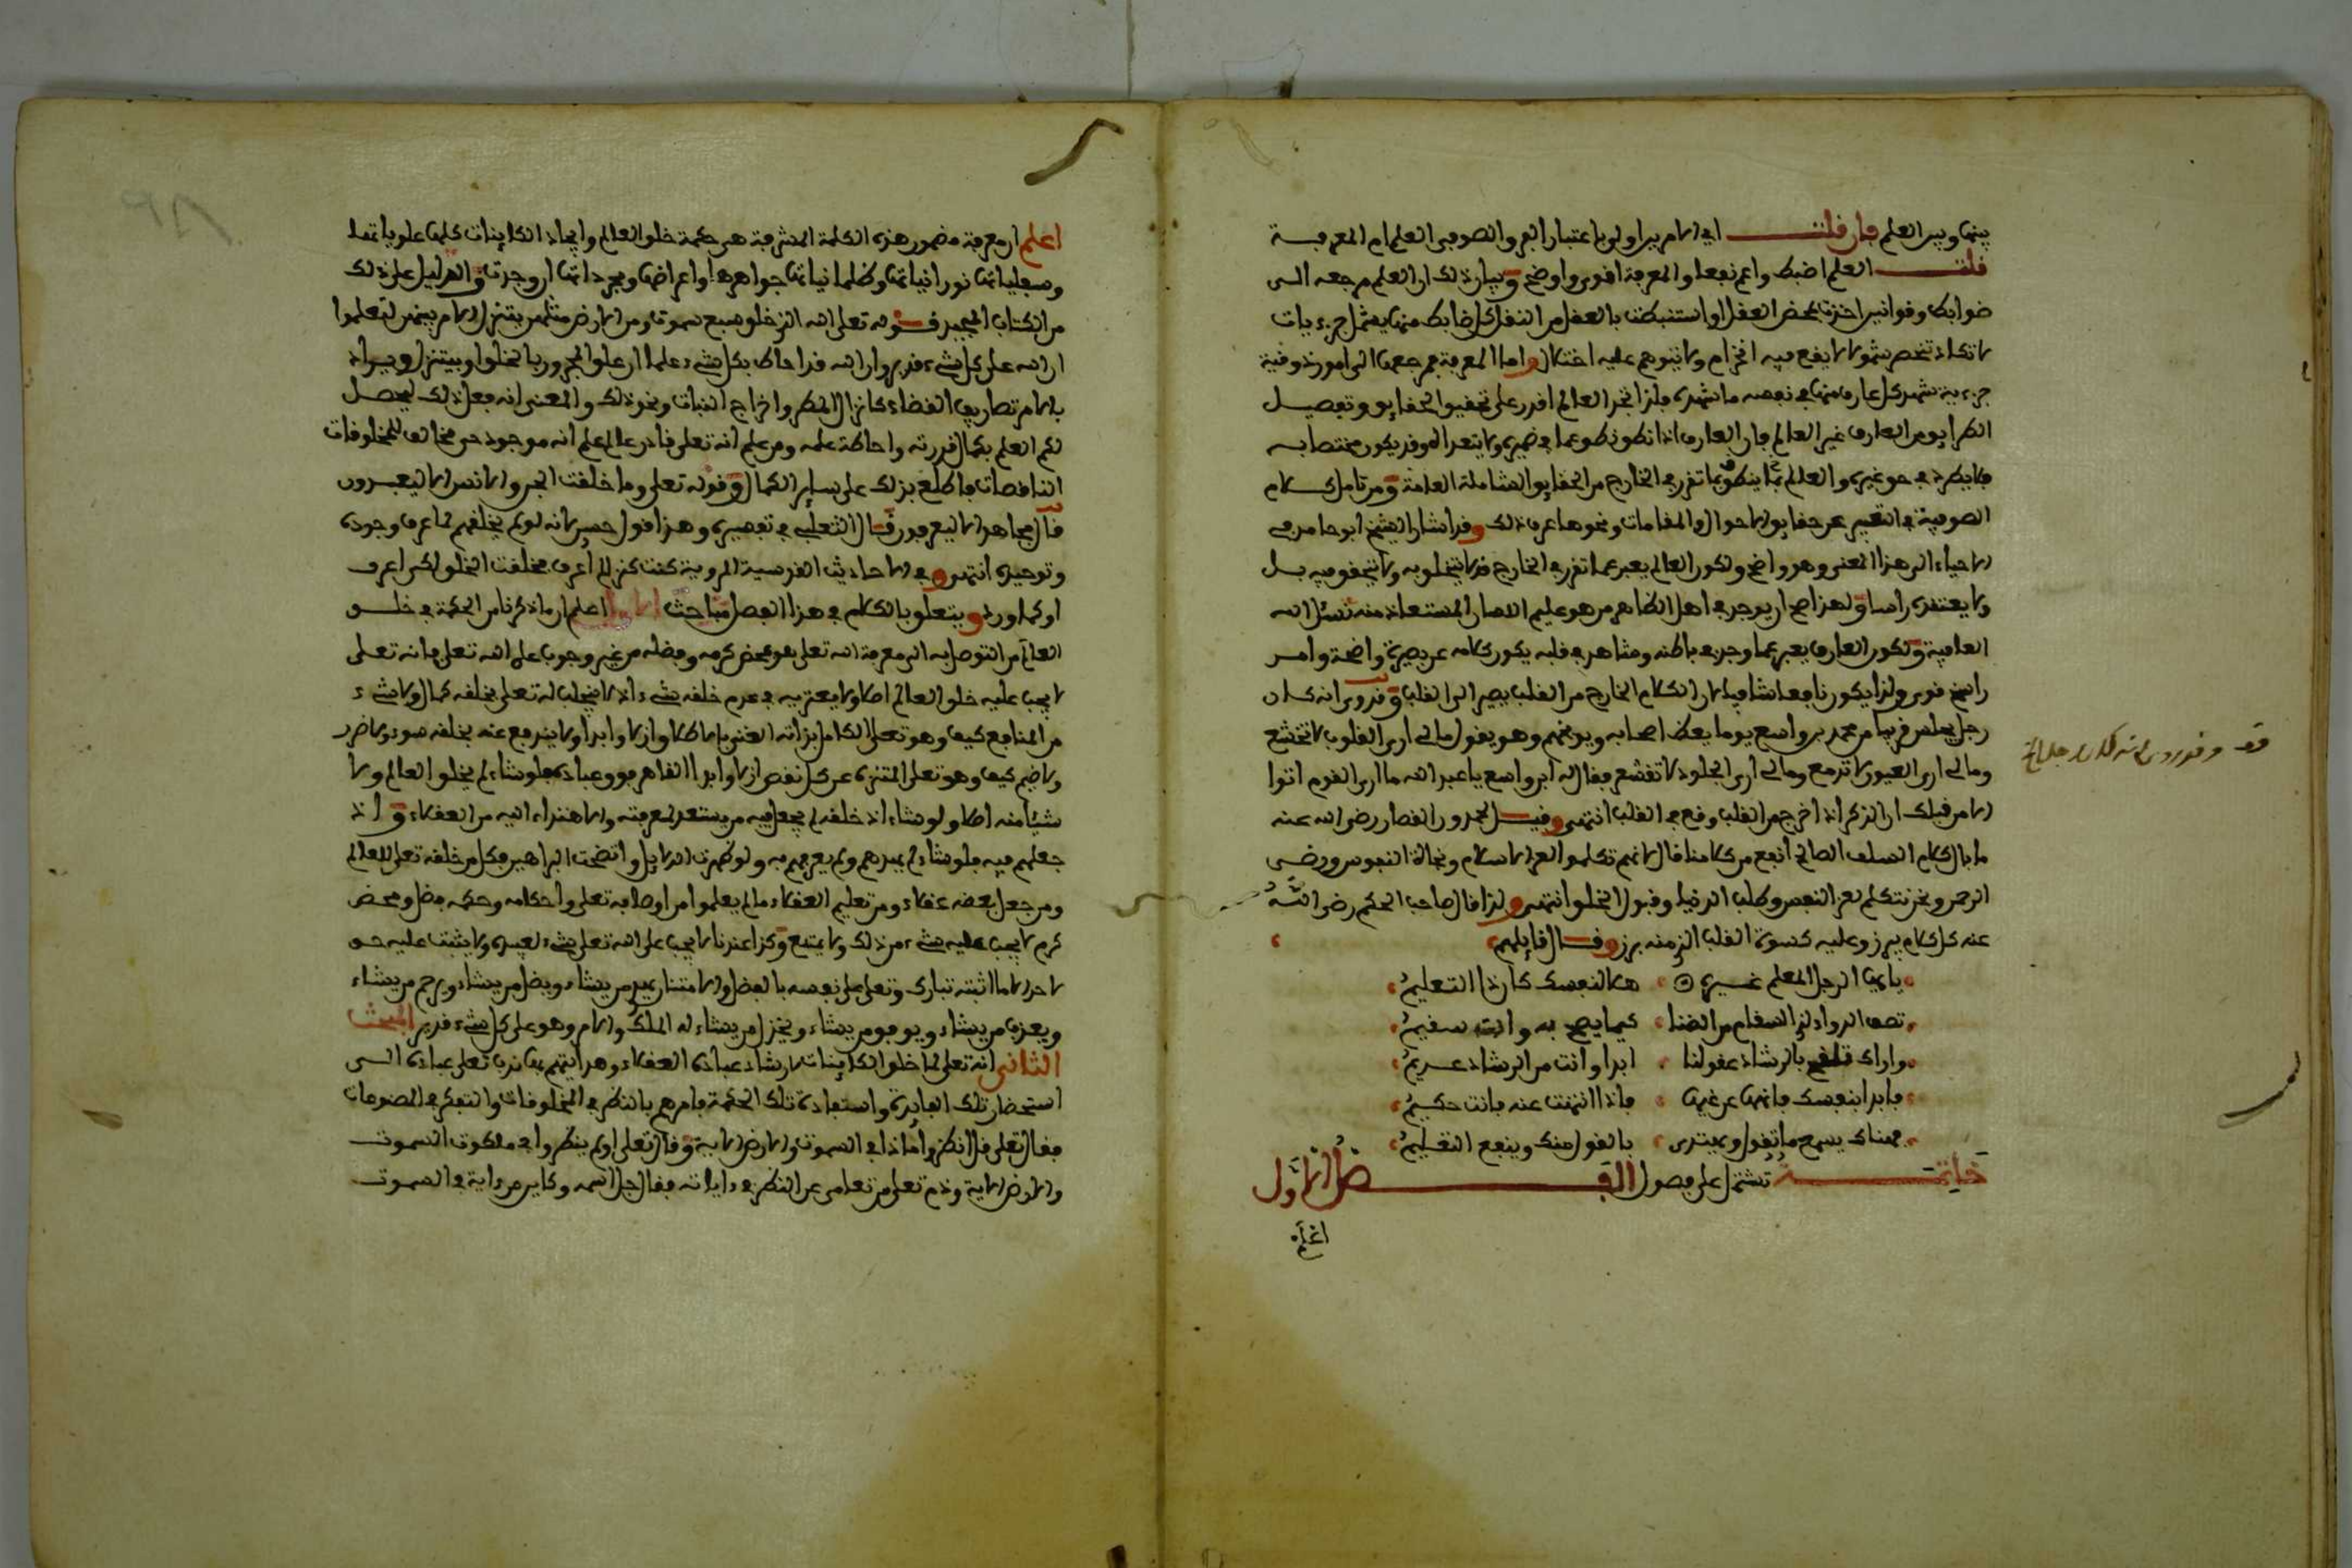 بينها وبين العلم فان قلت اي الامرين اولى باعتبار العرف والصوفي العلم ام المعرفة
قلت العلم اضبط واعم نفعا والمعرفة اقوى واوضح وبيان ذلك ان العلم مرجعه الى
ضوابط وقوانين اخذت بمحض العقل او استنبطت بالعقل من النقل كل ضابط منها يشمل جزءيات
لا تكاد تنحصر ثم لا يقع فيه انخرام ولا يتوهم عليه اختلال واما المعرفة فمرجعها الى امور ذوقية
جزءية شهد كل عارف منها في نفسه ما شهده فلذا تجد العالم اقدر على تحقيق الحقايق وتفصيل
الطرايق من العارف غير العالم فان العارف اذا نطق نطق عما في ضميره ولا يتعداه وقد يكون مختصا به
فلا يطرد في حق غيره والعالم انما ينطق بما تقرر في الخارج من الحقايق الشاملة العامة ومن تامل كلام
الصوفية في التعبير عن حقايق الاحوال والمقامات ونحوها عرف ذلك وقد اشار الشيخ ابو حامد في
الاحياء الى هذا المعنى وهو واضح ولكون العالم يعبر عما تقرر في الخارج قد لا يتخلق به ولا يتحقق فيه بل
ولا يعتقده راسا ولهذا صح ان يوجد في اهل الظاهر من هو عليم اللسان المستعاذ منه نسئل الله
العافية ولكون العارف يعبر عما وجد في باطنه ومشاهد في قلبه يكون كلامه عن بصيرة واضحة وامر
راسخ قوي ولذا يكون نافعا شافيا لان الكلام الخارج من القلب يصير الى القلب وقد روي انه كان
رجل يجلس قريبا من محمد بن واسع يوما يعظ اصحابه ويوبخهم وهو يقول مالي ارى القلوب لا تخشع
ومالي ارى العيون لا تدمع ومالي ارى الجلود لا تقشعر فقال له ابن واسع يا عبد الله ما ارى القوم اتوا
الا من قبلك ان الذكر اذا خرج من القلب وقع في القلب انتهى وقيل لحمدون القصار رضي الله عنه
ما بال كلام السلف الصالح انفع من كلامنا قال لانهم تكلموا لعز الاسلام ونجاة النفوس ورضى
الرحمن ونحن نتكلم لعز النفس وطلب الدنيا وقبول الخلق انتهى ولذا قال صاحب الحكم رضي الله
عنه كل كلام يبرز وعليه كسوة القلب الذي منه برز وقال قايلهم
يا ايها الرجل المعلم غيره هلا لنفسك كان ذا التعليم
تصف الدواء لذي السقام من الضنا كيما يصح به وانت سقيم
واراك تلقح بالرشاد عقولنا ابدا وانت من الرشاد عديم
فابدا بنفسك فانهها عن غيها فاذا انتهت عنه فانت حكيم
فهناك يسمع ما تقول ويقتدى بالقول منك وينفع التعليم
خاتمة تشتمل على فصول الفصل الاول
اعلم
اعلم ان معرفة مضمون هذه الكلمة المشرفة هي حكمة خلق العالم وايجاد الكاينات كلها علوياتها
وسفلياتها نورانياتها وظلمانياتها جواهرها واعراضها ومجرداتها ان وجدت والدليل على ذلك
من الكتاب المجيد قوله تعلى الله الذي خلق سبع سموت ومن الارض مثلهن يتنزل الامر بينهن لتعلموا
ان الله على كل شيء قدير وان الله قد احاط بكل شيء علما ان علق المجرور بالخلق او بيتنزل
بالامر تصاريف القضاء كانزال المطر واخراج النبات ونحو ذلك والمعنى انه فعل ذلك ليحصل
لكم العلم بكمال قدرته واحاطة علمه ومن علم انه تعلى قادر عالم علم انه موجود حي مخالف للمخلوقات
الناقصات فاطلع بذلك على ساير الكمال وقوله تعلى وما خلقت الجن والانس الا ليعبدون
قال مجاهد الا ليعرفون قال الثعلبي في تفسيره وهذا قول حسن لانه لو لم يخلقهم لما عرف وجوده
وتوحيده انتهى وفي الاحاديث القدسية المروية كنت كنزا لم اعرف فخلقت الخلق لكي اعرف
او كما ورد ويتعلق بالكلام في هذا الفصل مباحث الاول اعلم ان ما ذكرنا من الحكمة في خلق
العالم من التوصل به الى معرفة الله تعلى هو محض كرمه وفضله من غير وجوب على الله تعلى فانه تعلى
لا يجب عليه خلق العالم اصلا ولا يعتريه في عدم خلقه شيء اذ لا ينجلب له تعلى بخلقه كمال ولا شيء
من المنافع كيف وهو تعلى الكامل بذاته الغني باطلاق ازلا وابدا ولا يندفع عنه بخلقه سوء ولا ضرر
ولا ضيم كيف وهو تعلى المتنزه عن كل نقص ازلا وابدا القاهر فوق عباده فلو شاء لم يخلق العالم ولا
شيئا منه اصلا ولو شاء اذ خلقه لم يجعل فيه من يستعد لمعرفته والاهتداء اليه من العقلاء واذ
جعلهم فيه فلو شاء لم يهدهم ولم يعرفهم به ولو ظهرت الدلايل واتضحت البراهين فكل من خلقه تعلى للعالم
ومن جعل بعضه عقلاء ومن تعليم العقلاء ما لم يعلموا من اوصافه تعلى واحكامه وحكمه فضل ومحض
كرم لا يجب عليه شيء من ذلك ولا يمتنع وكذا عندنا لا يجب على الله تعلى شيء لغيره ولا يثبت عليه حق
لاحد الا ما اثبته تبارك وتعلى على نفسه بالفضل والامتنان يهدي من يشاء ويضل من يشاء ويرحم من يشاء
ويعذب من يشاء ويوفق من يشاء ويخذل من يشاء له الملك والامر وهو على كل شيء قدير المبحث
الثاني انه تعلى لما خلق الكاينات لارشاد عباده العقلاء وهدايتهم بها ندب تعلى عباده الى
استحضار تلك الفايدة واستفادة تلك الحكمة فامرهم بالنظر في المخلوقات والتفكر في المصنوعات
فقال تعلى قل انظروا ماذا في السموت والارض الاية وقال تعلى او لم ينظروا في ملكوت السموت
والارض الاية وذم تعلى من تعامى عن النظر في داياته فقال جل اسمه وكاين من داية في السموت